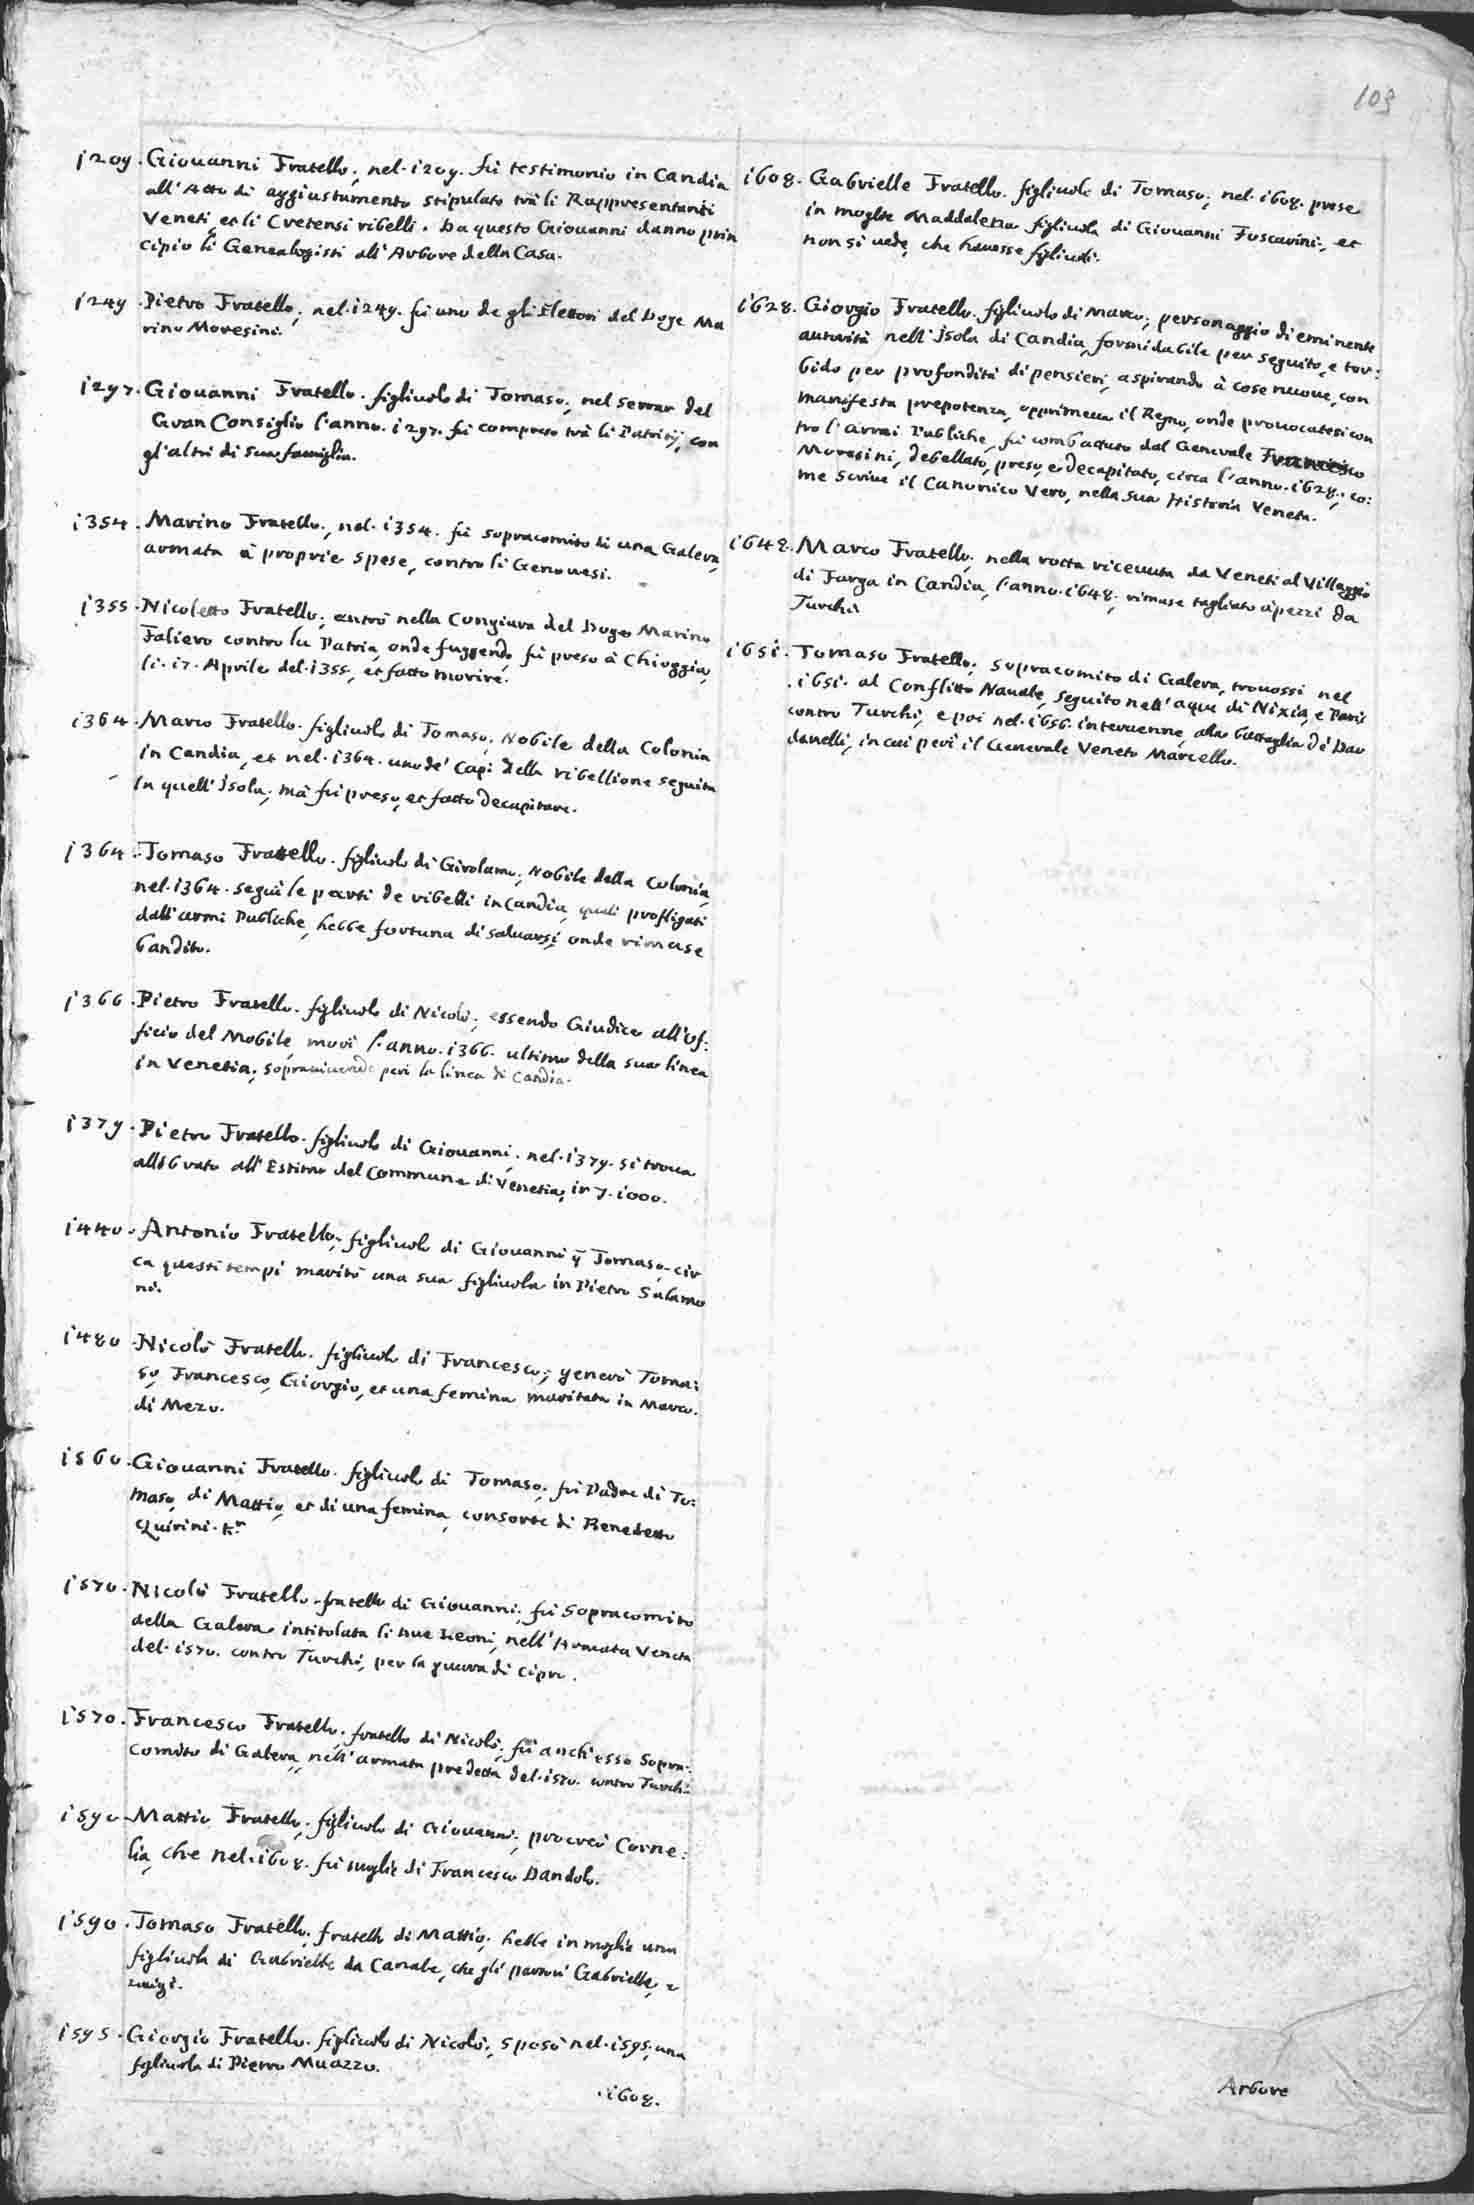 103
1209. Giouanni Fratello; nel. 1209. fù testimonio in Candia
all'Atto di aggiustamento stipulato trà li Rappresentanti
Veneti, et li Cretensi ribelli. Da questo Giouanni danno prin
cipio li Genealogisti all'Arbore della Casa.
1249. Pietro Fratello; nel. 1249. fù uno de gli Elettori del Doge Ma
rino Moresini.
1297. Giouanni Fratello. figliuolo di Tomaso; nel serrar del
Gran Consiglio l'anno. 1297. fù compreso trà li Patritij, con
gl'altri di sua famiglia.
1354. Marino Fratello; nel. 1354. fù sopracomito di una Galera,
armata à proprie spese, contro li Genouesi.
1355. Nicoletto Fratello; entrò nella Congiura del Doge Marino
Faliero contro la Patria, onde fuggendo, fù preso à Chioggia,
li. 17. Aprile del. 1355, et fatto morire.
1364. Marco Fratello. figliuolo di Tomaso; Nobile della Colonia
in Candia, et nel. 1364. uno de' Capi della ribellione seguita
in quell'Isola; mà fù preso, et fatto decapitare.
1364. Tomaso Fratello. figliuolo di Girolamo; Nobile della Colonia,
nel. 1364. seguì le parti de ribelli in Candia, quali profligati
dall'armi Publiche, hebbe fortuna di saluarsi, onde rimase
bandito.
1366. Pietro Fratello. figliuolo di Nicolò; essendo Giudice all'Of:
ficio del Mobile, morì l'anno. 1366. ultimo della sua linea
in Venetia; sopraviuendo però la linea di Candia.
1379. Pietro Fratello. figliuolo di Giouanni; nel. 1379. si troua
allibrato all'Estimo del Commune di Venetia, in 7. 1000.
1440. Antonio Fratello; figliuolo di Giouanni q Tomaso, cir
ca questi tempi maritò una sua figliuola in Pietro Salamo
nò.
1480. Nicolò Fratello. figliuolo di Francesco; generò Toma:
so, Francesco, Giorgio, et una femina maritata in Marco.
di Mezo.
1560. Giouanni Fratello. figliuolo di Tomaso; fù Padre di To:
maso, di Mattio, et di una femina, consorte di Benedetto
Quirini. Kr
1570. Nicolò Fratello. fratello di Giouanni; fù Sopracomito
della Galera intitolata li due Leoni, nell'Armata Veneta
del. 1570. contro Turchi, per la guerra di Cipro.
1570. Francesco Fratello. fratello di Nicolò; fù anch'esso Sopra:
comito di Galera, nell'armata predetta del. 1570. contro Turchi.
1590. Mattio Fratello; figliuolo di Giouanni; procreò Corne:
lia, che nel. 1608. fù moglie di Francesco Dandolo.
1590. Tomaso Fratello; fratello di Mattio; hebbe in moglie una
figliuola di Gabrielle da Canale, che gli partorì Gabrielle, e
Luigi.
1595. Giorgio Fratello. figliuolo di Nicolò; sposò nel. 1595. una
figliuola di Pietro Muazzo.
.1608.
1608. Gabrielle Fratello. figliuolo di Tomaso; nel. 1608. prese
in moglie Maddalena figliuola di Giouanni Foscarini, et
non si uede, che hauesse figliuoli.
1628. Giorgio Fratello. figliuolo di Marco; personaggio di eminente
autorità nell'Isola di Candia, formidabile per seguito, e tor:
bido per profondità di pensieri, aspirando à cose nuoue, con
manifesta prepotenza, opprimeua il Regno, onde prouocatesi con
tro l'armi Publiche, fù combattuto dal Generale Francesco
Moresini, debellato, preso, e decapitato, circa l'anno. 1628., co:
me scriue il Canonico Vero, nella sua Historia Veneta.
1648. Marco Fratello; nella rotta riceuuta da Veneti al Villaggio
di Furga in Candia, l'anno. 1648; rimase tagliato à pezzi da
Turchi.
1651. Tomaso Fratello; sopracomito di Galera, trouossi nel
.1651. al Conflitto Nauale, seguito nell'aque di Nixia, e Paris
contro Turchi, e poi nel. 1656. interuenne, alla battaglia de' Dar
danelli, in cui perì il Generale Veneto Marcello.
Arbore